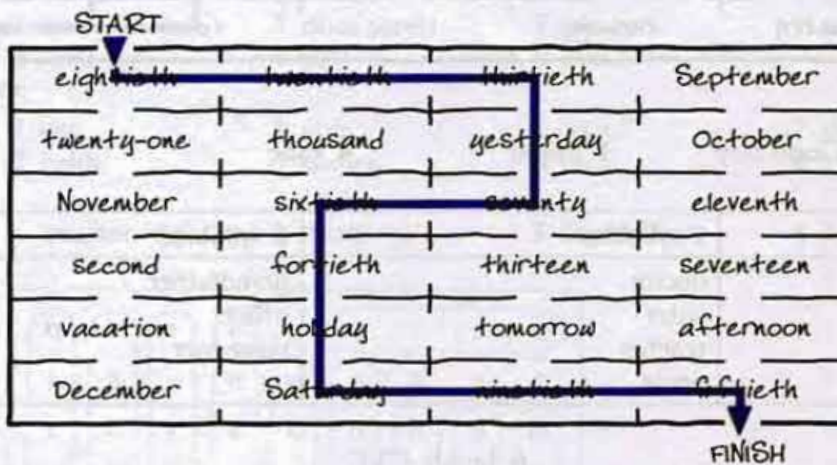 START
eightieth twentieth thirtieth September
twenty-one thousand yesterday October
November sixtieth seventy eleventh
second fortieth thirteen seventeen
vacation holiday tomorrow afternoon
December Saturday ninetieth fiftieth
FINISH